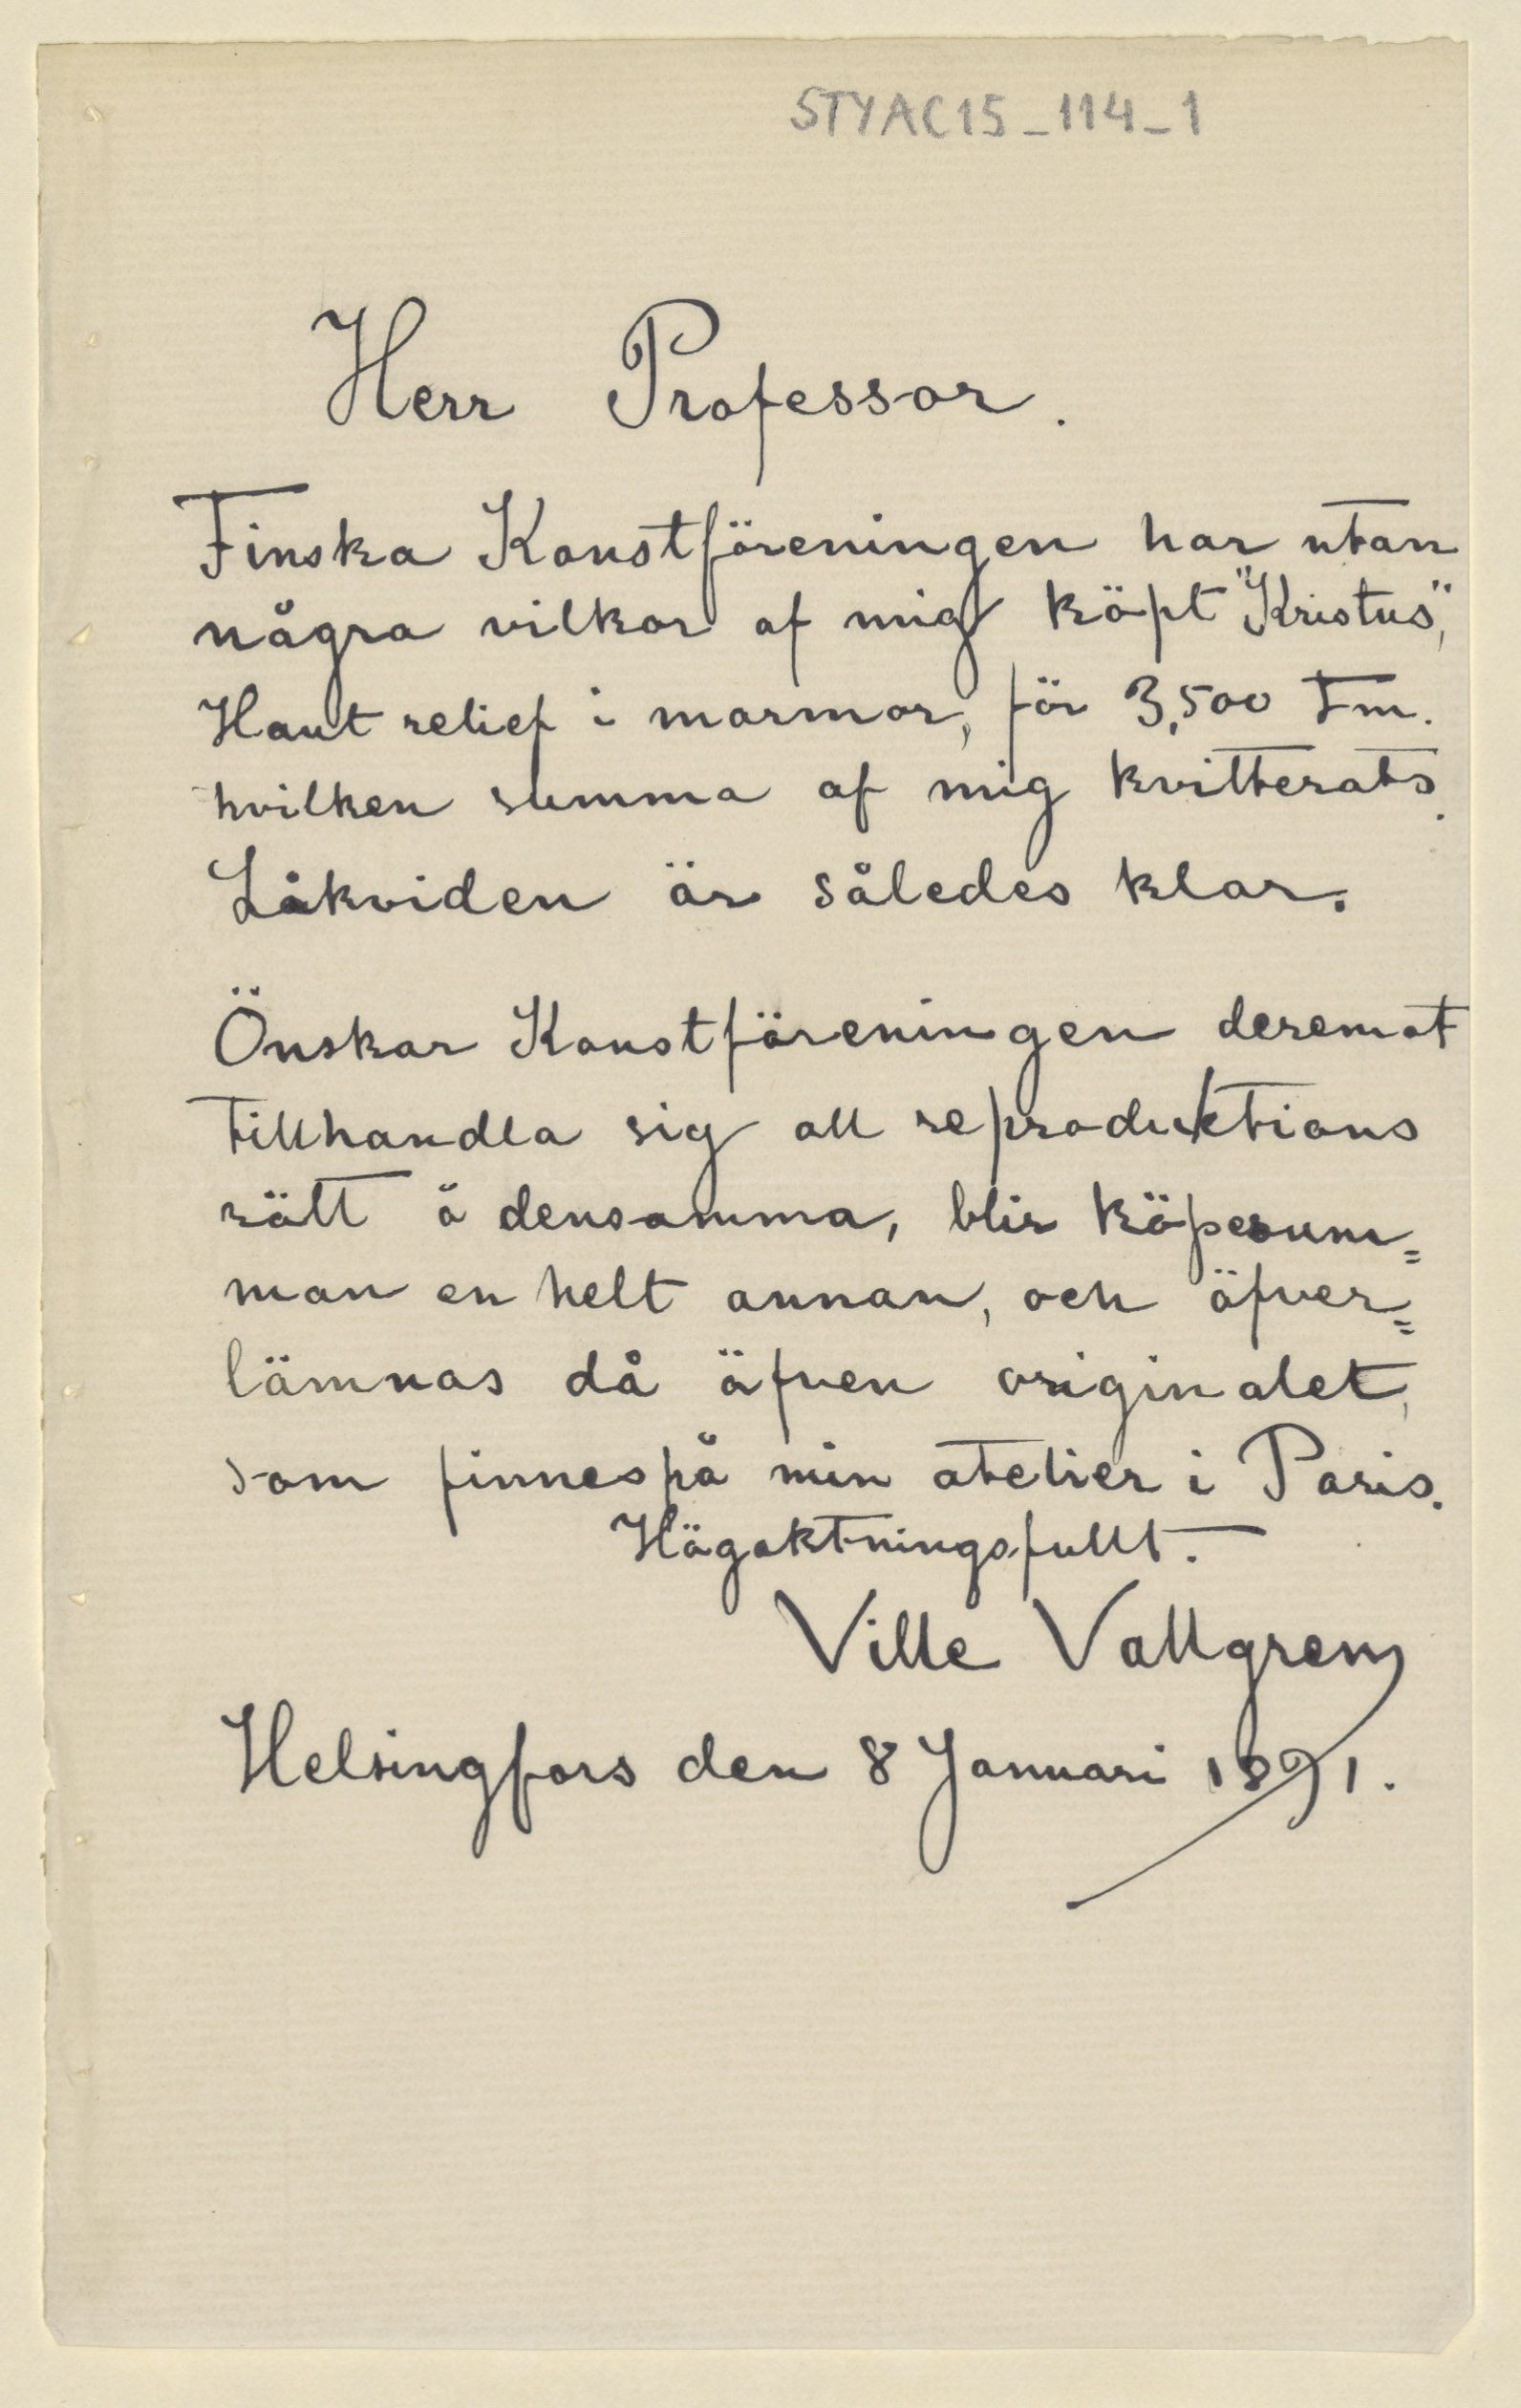 STYAC15_114_1
Herr Professor.
Finska Konstföreningen har utan
några vilkor af mig köpt "Kristus",
Haut relief i marmor, för 3,500 Fm.
hvilken summa af mig kvitterats.
Likviden är således klar.
Önskar Konstföreningen deremot
tillhandla sig all reproduktions
rätt å densamma, blir köpesum=
man en helt annan, och öfver=
lämnas då äfven originalet,
som finnes på min atelier i Paris.
Högaktningsfullt.
Ville Vallgren
Helsingfors den 8 Januari 1891.